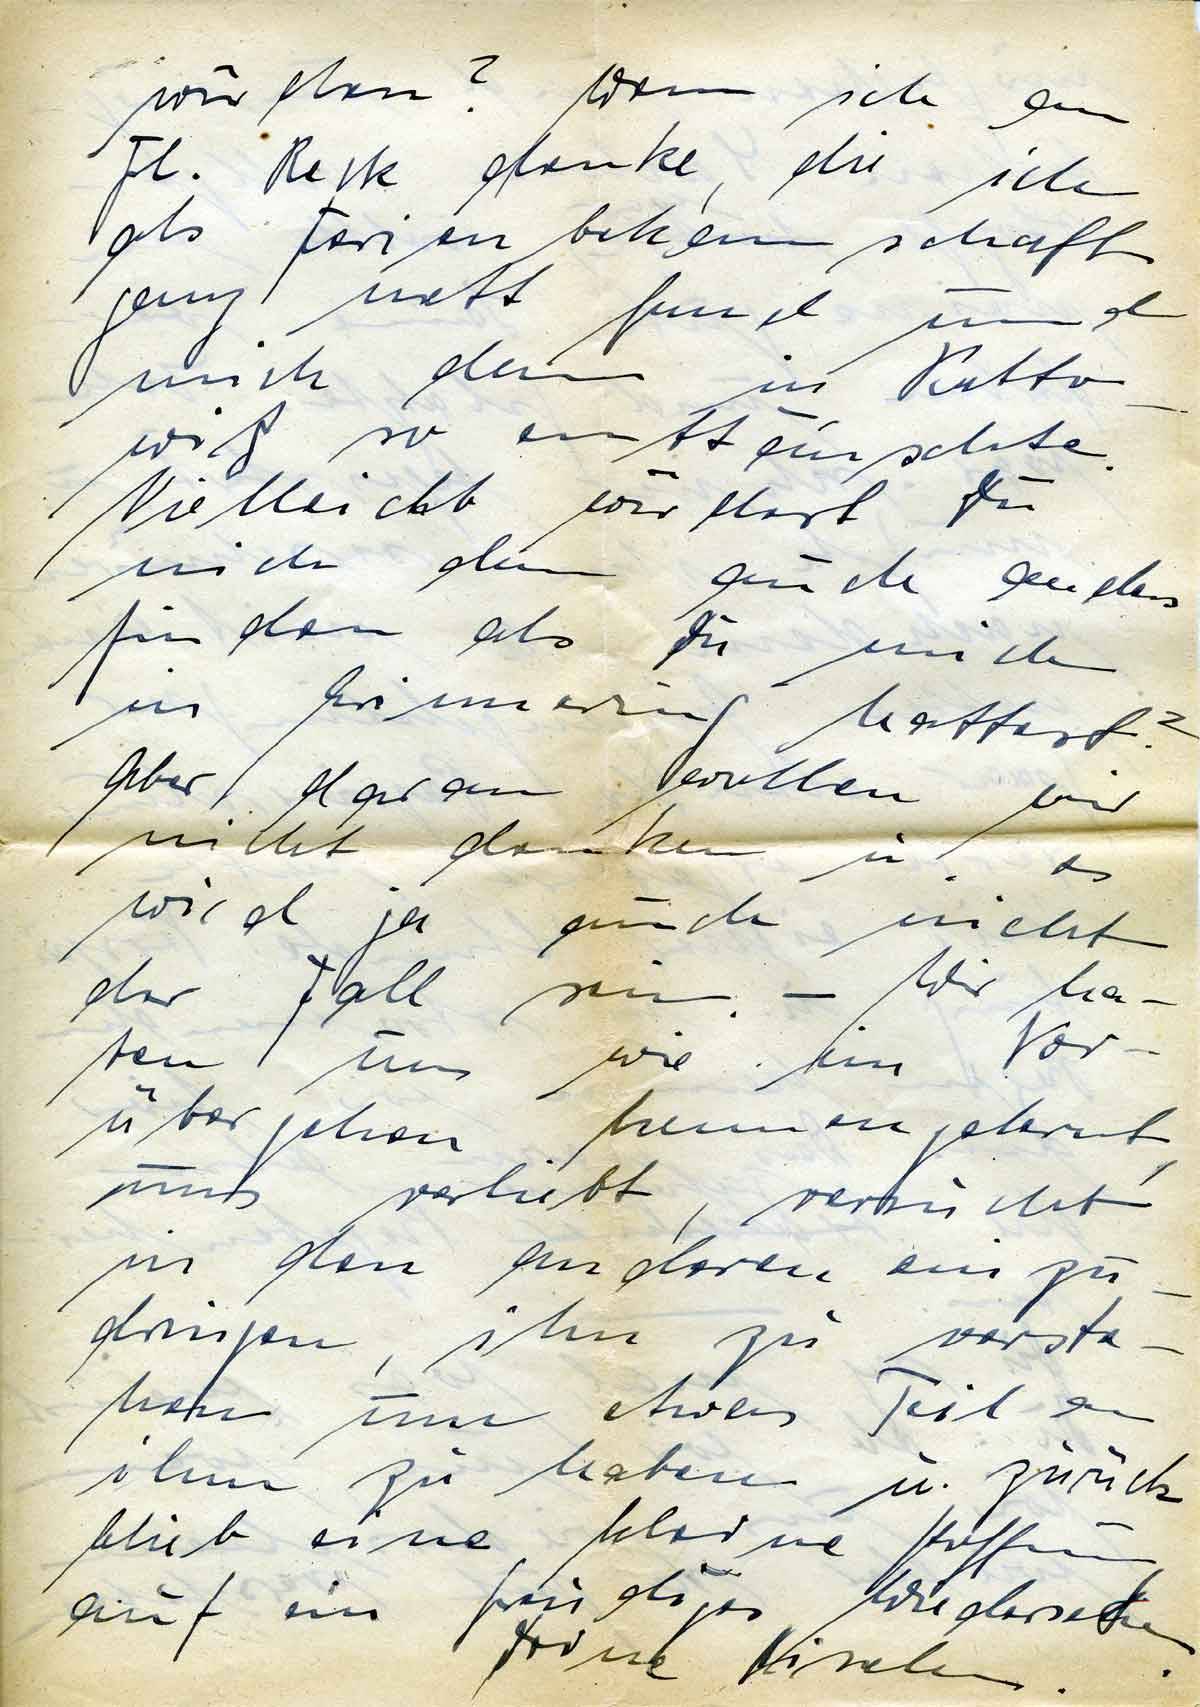 würden? Wenn ich an
Frl. Resk denke, die ich
als Ferienbekanntschaft
ganz nett fand und
mich dann in Katto-
witz so enttäuschte.
Vielleicht würdest Du
mich dann auch anders
finden als Du mich
in Erinnerung hattest?
Aber daran wollen wir
nicht denken u. es
wird ja auch nicht
der Fall sein. – Wir ha-
ten uns wie im Vor-
übergehen kennengelernt,
uns verliebt, versucht
in den anderen einzu-
dringen, ihn zu verste-
hen um etwas Teil an
ihm zu haben u. zurück
blieb eine kleine Hoffnung
auf ein freudiges Wiedersehen.
Deine